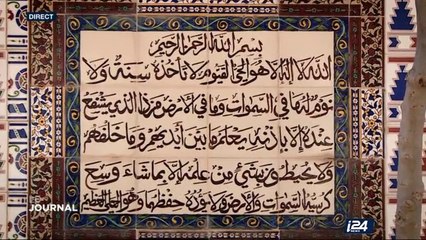 DIRECT
بسم الله الرحمن الرحيم
الله لا إله إلا هو الحي القيوم لا تأخذه سنة ولا
نوم له ما في السموات وما في الأرض من ذا الذي يشفع
عنده إلا بإذنه يعلم ما بين أيديهم وما خلفهم
ولا يحيطون بشيء من علمه إلا بما شاء وسع
كرسيه السموات والأرض ولا يؤده حفظهما وهو العلي العظيم
JOURNAL
i24
NEWS